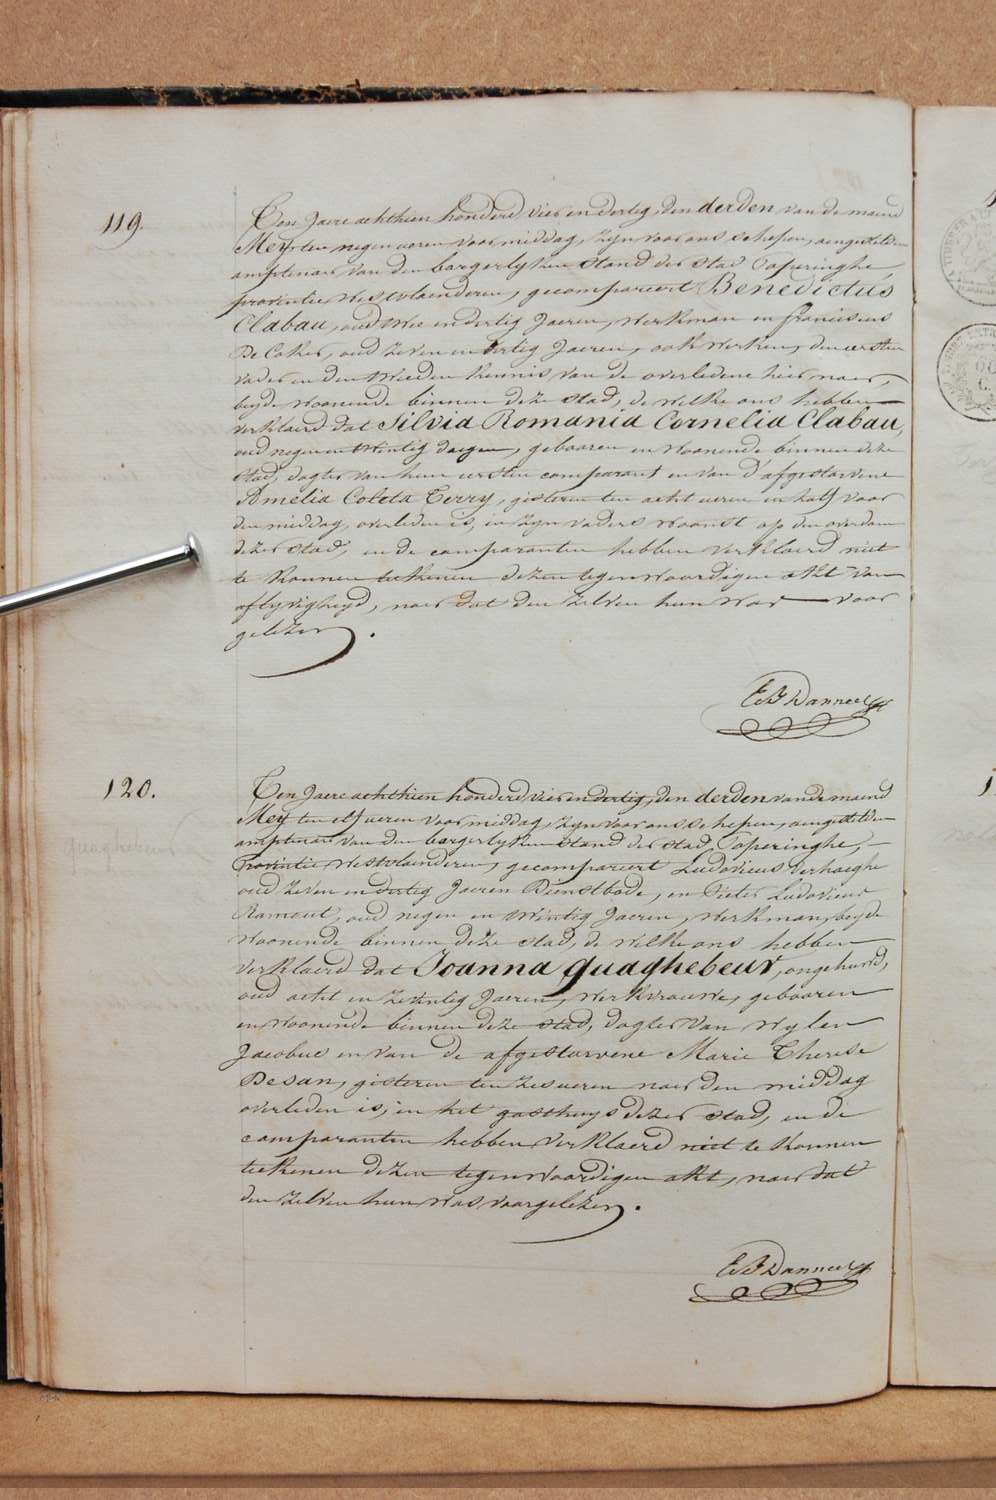 119.
Ten Jaere achthien honderd vier en dertig, den derden van de maend
Mey, ten negen uren voormiddag, zyn voor ons schepen, aengestelden
amptenaer van den borgerlyken stand der stad Poperinghe,
provintie Westvlaenderen, gecompareert Benedictus
Clabau, oud twee en dertig Jaeren, werkman en franciscus
De Coker, oud zeven en dertig Jaeren, ook werkman, den eersten
vader en den tweeden kennis van de overledene hier naer,
beyde woonende binnen deze stad, de welke ons hebben
verklaerd dat Silvia Romania Cornelia Clabau,
oud negen en twintig dagen, gebooren en woonende binnen deze
stad, dogter van hun eersten comparant en van d'afgestorvene
Amelia Coleta Terry, gisteren ten acht uren en half voor
den middag, overleden is, in zyn vaders woonst op den overdam
dezer stad, en de comparanten hebben verklaerd niet
te konnen teekenen dezen tegenwoordigen akt van
aflyvigheyd, naer dat den zelven hun was voor
gelezen.
E B Danneel
120.
Ten Jaere achthien honderd vier en dertig, den derden van de maend
Mey ten elf uren voormiddag, zyn voor ons schepen, aengestelden
amptenaer van den borgerlyken stand der stad Poperinghe,
provintie Westvlaenderen, gecompareert Ludovicus Verhaeghe
oud zeven en dertig Jaeren Dienstbode, en Pieter Ludovicus
Ramout, oud negen en twintig Jaeren, werkman, beyde
woonende binnen deze stad, de welke ons hebben
verklaerd dat Joanna quaghebeur, ongehuwd,
oud acht en zeventig Jaeren, werkvrouwe, gebooren
en woonende binnen deze stad, dogter van wylen
Jacobus en van de afgestorvene Marie Therese
Desan, gisteren ten zes uren naer den middag
overleden is, in het gasthuys dezer stad, en de
comparanten hebben verklaerd niet te konnen
teekenen dezen tegenwoordigen akt, naer dat
den zelven hun was voorgelezen.
E B Danneel
quaghebeur